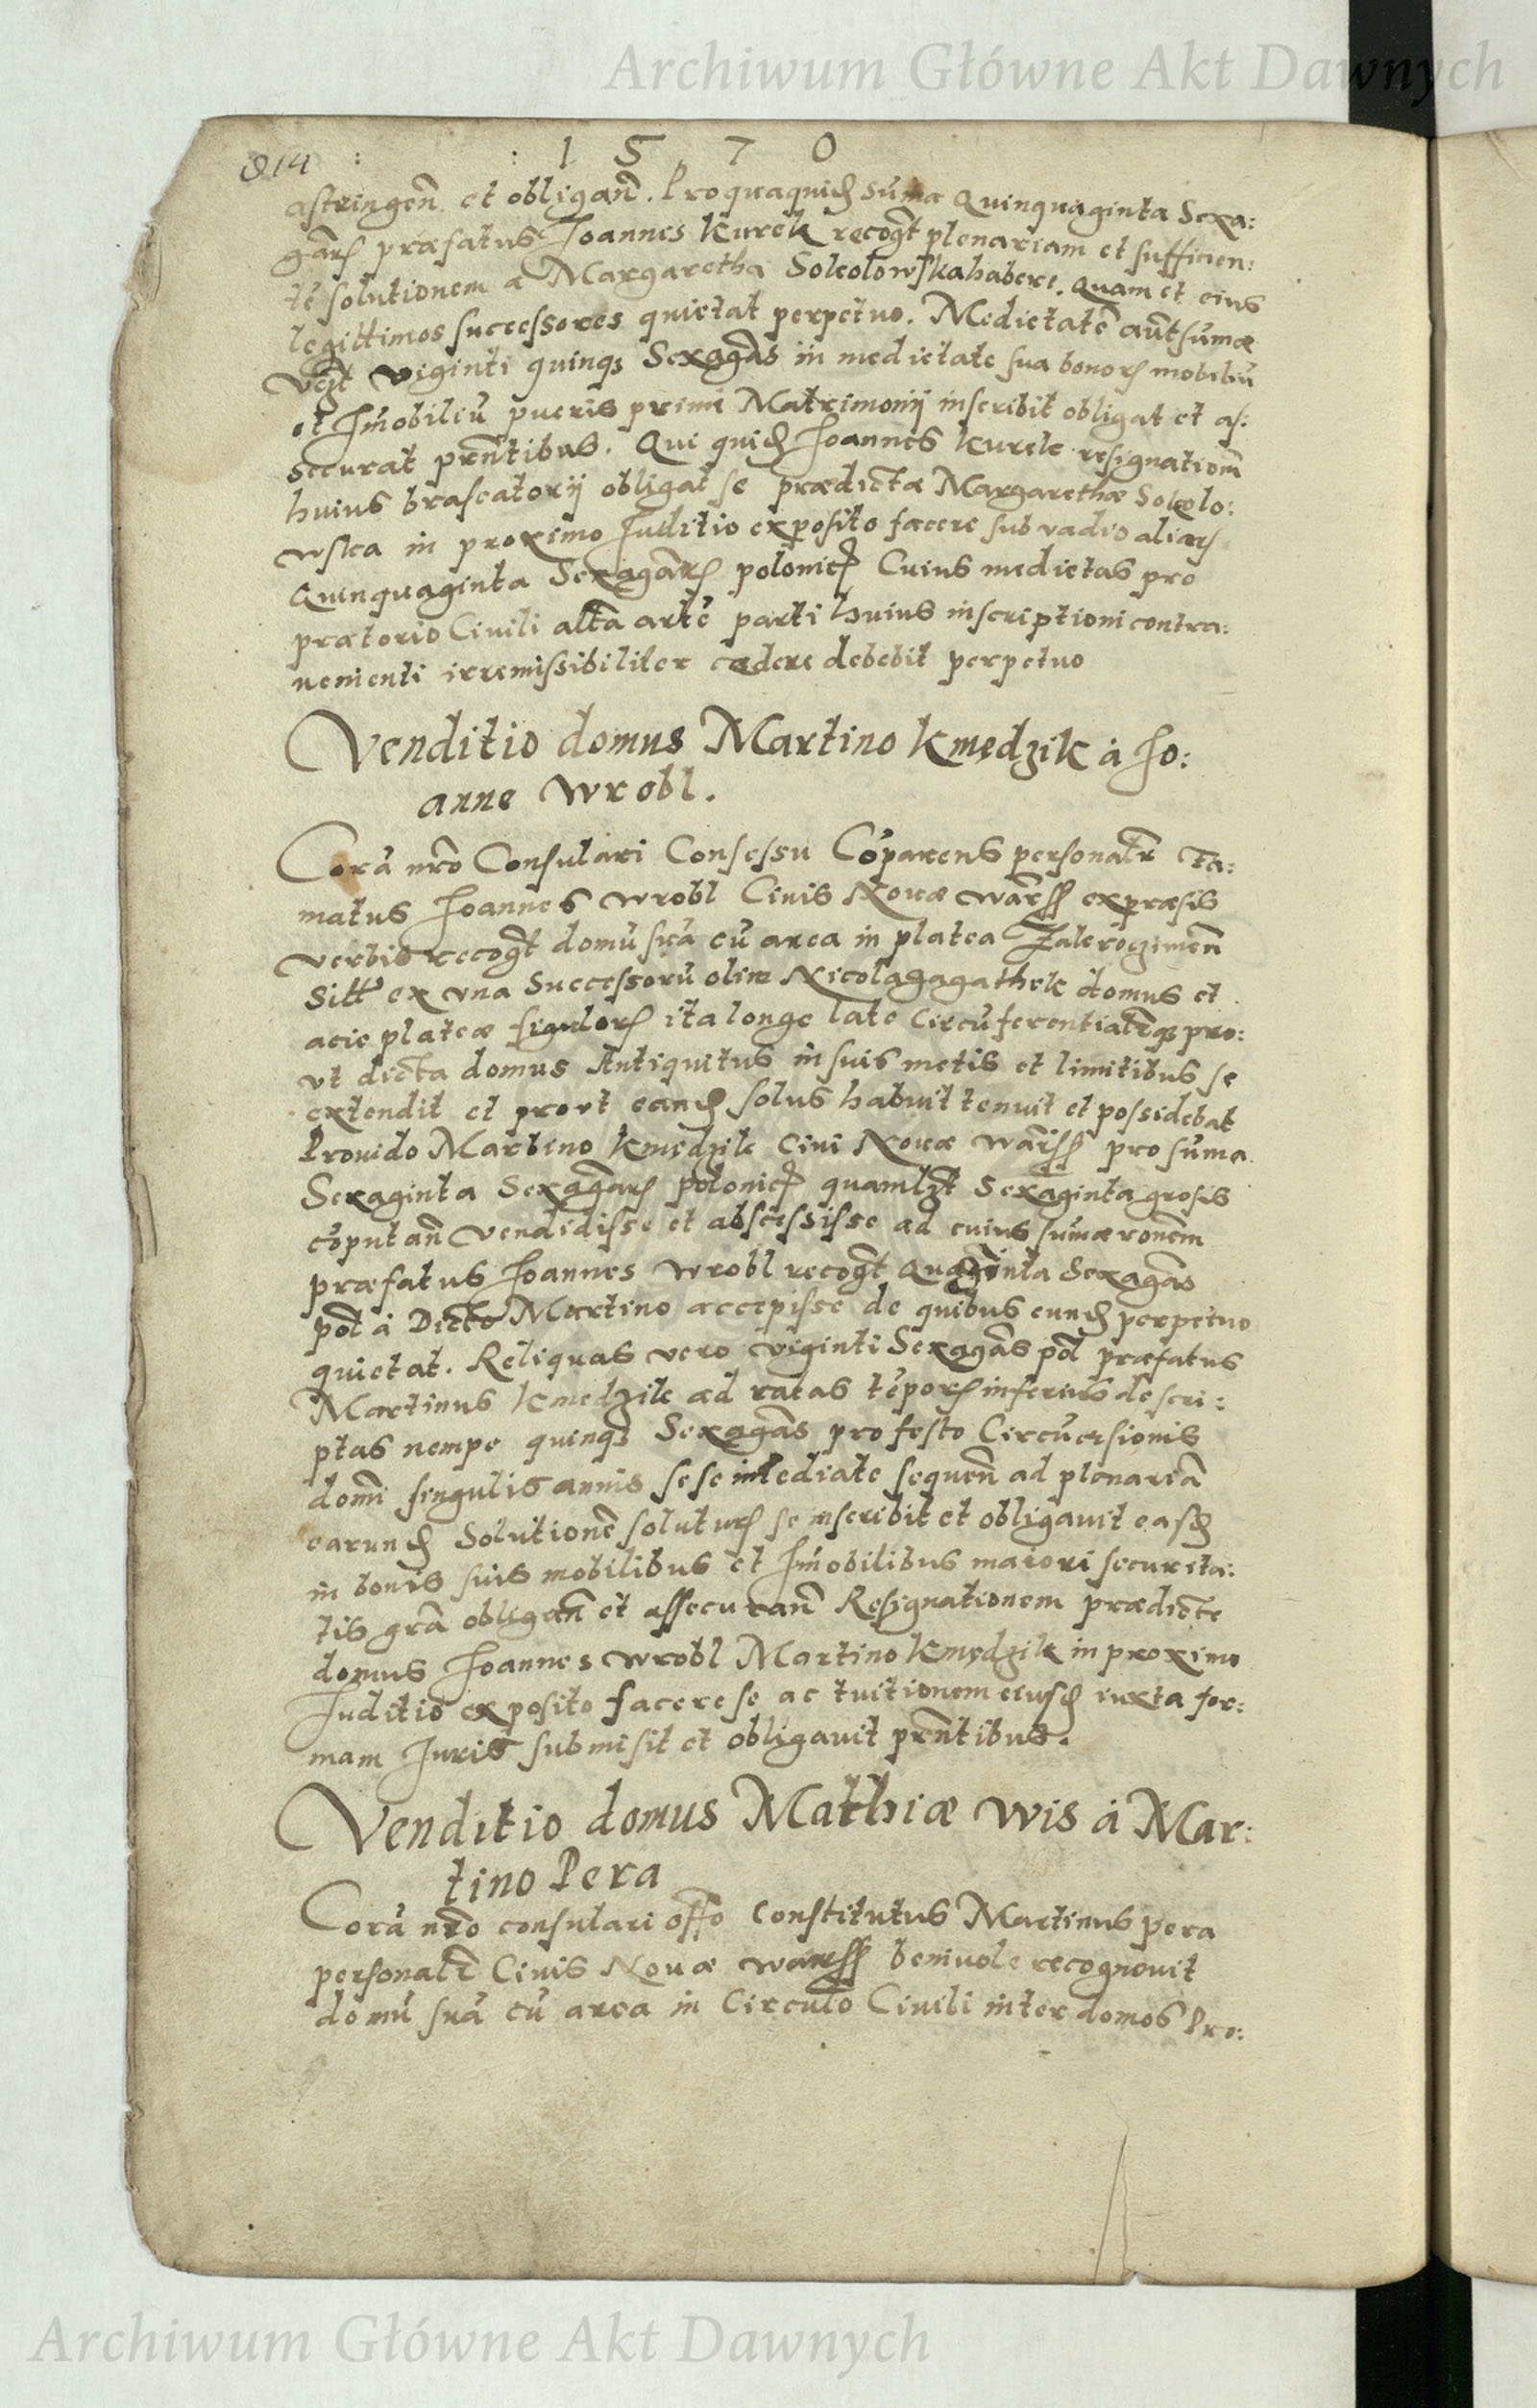 Archiwum Główne Akt Dawnych
814 : : 1 5 7 0
astringeñ et obligañ. Pro quaquid sum̃a Quinquaginta Sexa:
gãr præfatus Joannes Kurek recogt̃ plenariam et sufficien:
tẽ solutionem a Margaretha Sokolowska habere. Quam et eius
legittimos successores quietat perpetuo. Medietatẽ aũt sum̃æ
vigt̃ viginti quinq3 Sexagãs in medietate sua bonor mobiliũ
et Im̃obiliũ pueris primi Matrimonij inscribit obligat et as:
securat pñtibus. Qui quid Joannes Kurek resignationẽ
huius braseatorij obligat se prædictæ Margarethæ Sokolo:
wska in proximo Juditio exposito facere sub vadio aliar
Quinquaginta Sexagãr polonic Cuius medietas pro
prætorio Civili altã artẽ parti huius inscriptioni contra:
uenienti irremissibiliter cadere debebit perpetuo
Venditio domus Martino Kmędzik à Jo:
anne Wrobl.
Corã nr̃o Consulari Consessu Cõparens personalr̃ Fa:
matus Joannes Wrobl Ciuis Nouæ Warss expræsis
verbis recogt̃ domũ suã cũ area in platea
ex vna Successorũ olim domus et
acie plateæ figulor ita longe late Circũferentialr̃q3 pro:
ut dicta domus Antiquitus in suis metis et limitibus se
extendit et prout eand solus habuit tenuit et possidebat
Prouido Martino Kmędzik Ciui Nouæ Warss pro sum̃a
Sexaginta Sexagãr polonic quamlt̃ Sexaginta grosis
cõputañ Vendidisse et abscessisse ad cuius sum̃æ ronẽm
præfatus Joannes Wrobl recogt̃ Quaginta Sexagãs
pol̃ à Dicto Martino accepisse de quibus eund perpetuo
quietat. Reliquas vero viginti Sexagãs pol̃ præfatus
Martinus Kmedzik ad ratas tẽpor inferius descri:
ptas nempe quinq3 Sexagãs pro festo Circũcisionis
domĩ singulis annis sese im̃ediate sequeñ ad plenariã
earund Solutionẽ solutur se inscribit et obligauit easd
in bonis suis mobilibus et Im̃obilibus maiori securita:
tis grã obligañ et assecurañ Resignationem prædicte
domus Joannes Wrobl Martino Kmędzik in proximo
Juditio exposito facere se ac tuitionem eiusd iuxta for:
mam Juris submisit et obligauit pñtibus.
Venditio domus Mathiæ Wis à Mar:
tino Pera
Corã nr̃o consulari offõ Constitutus Martinus pera
personalr̃ Ciuis Nouæ Warss beniuole recognouit
domũ suã cũ area in Circulo Ciuili inter domos Pro:
Archiwum Główne Akt Dawnych